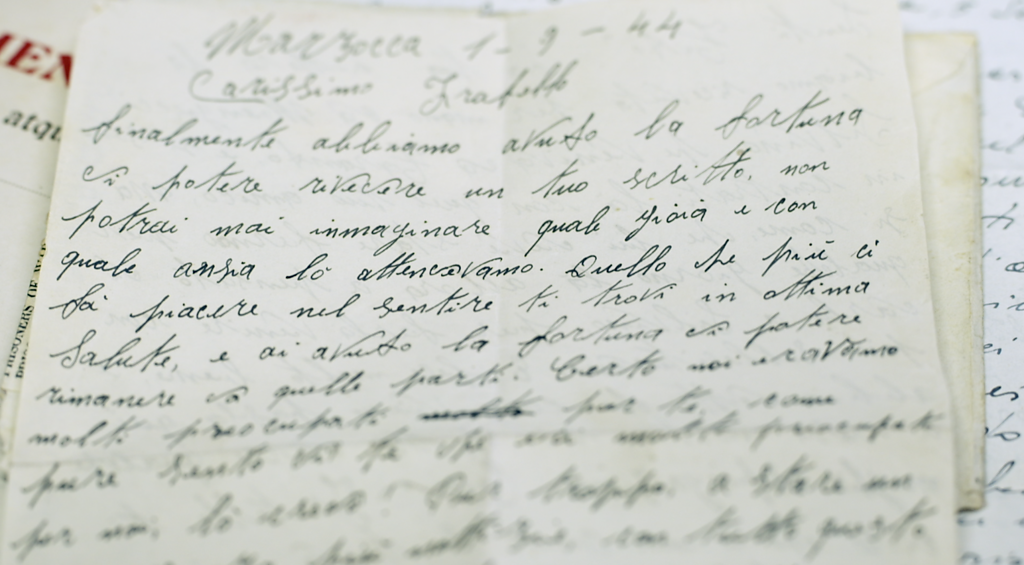 Marzocca 1 - 9 - 44
Carissimo Fratello
finalmente abbiamo avuto la fortuna
di potere rivedere un tuo scritto, non
potrai mai inmaginare quale gioia e con
quale ansia lò attendavamo. Quello che più ci
fà piacere nel sentire ti trovi in ottima
Salute, e ai avuto la fortuna di potere
rimanere da quelle parti. Certo noi eravamo
molti preocupati per te, come
pure sento da te che sei molto preocupato
per noi, lò credo! Pur troppo, a stare un
più notizie, con tutto questo
MEN
atqu
PRISONERS OF WAR